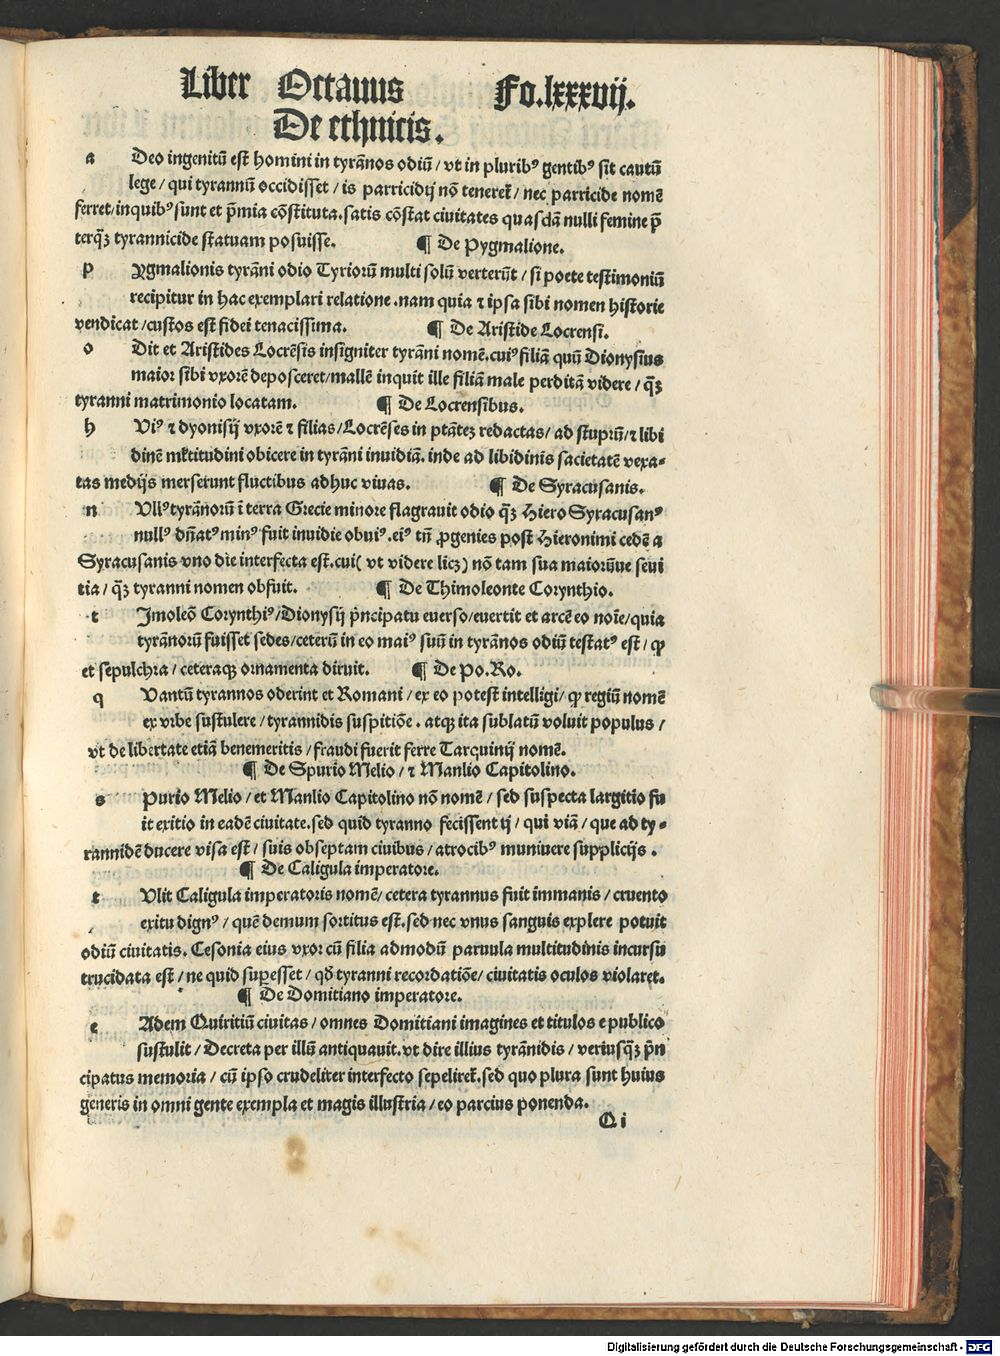 Liber Octauus Fo.lxxxvij.
De ethnicis.
a Deo ingenitū est homini in tyrānos odiū / vt in pluribꝰ gentibꝰ sit cautū
lege / qui tyrannū occidisset / is parricidij nō teneret̄ / nec parricide nomē
ferret/inquibꝰ sunt et p̄mia cōstituta.satis cōstat ciuitates quasdā nulli femine p̄
terqꝫ tyrannicide statuam posuisse. ¶ De Pygmalione.
p Ygmalionis tyrāni odio Tyriorū multi solū verterūt / si poete testimoniū
recipitur in hac exemplari relatione .nam quia ⁊ ipsa sibi nomen historie
vendicat /custos est fidei tenacissima. ¶ De Aristide Locrensi.
o Dit et Aristides Locrēsis insigniter tyrāni nomē.cuiꝰ filiā quū Dionysius
maior sibi vxorē deposceret/mallē inquit ille filiā male perditā videre / qꝫ
tyranni matrimonio locatam. ¶ De Locrensibus.
h Viꝰ ⁊ dyonisij vxorē ⁊ filias/Locrēses in ptātēꝫ redactas/ ad stuprū/⁊ libi
dinē mltitudini obicere in tyrāni inuidiā. inde ad libidinis sacietatē vexa-
tas medijs merserunt fluctibus adhuc viuas. ¶ De Syracusanis.
n Vllꝰ tyrānorū ī terra Grecie minore flagrauit odio qꝫ Hiero Syracusanꝰ
nullꝰ dn̄atꝰ minꝰ fuit inuidie obuiꝰ.eiꝰ tn̄ ꝓgenies post Hieronimi cedē a
Syracusanis vno die interfecta est.cui( vt videre licꝫ) nō tam sua maiorūue seui
tia / qꝫ tyranni nomen obfuit. ¶ De Thimoleonte Corynthio.
t Jmoleō Corynthiꝰ/Dionysij p̄ncipatu euerso/euertit et arcē eo noīe/quia
tyrānorū fuisset sedes/ceterū in eo maiꝰ suū in tyrānos odiū testatꝰ est / ꝙ
et sepulchra / ceteraqꝫ ornamenta diruit. ¶ De Po.Ro.
q Vantū tyrannos oderint et Romani / ex eo potest intelligi/ ꝙ regiū nomē
ex vrbe sustulere / tyrannidis suspitiōe . atqꝫ ita sublatū voluit populus /
vt de libertate etiā benemeritis / fraudi fuerit ferre Tarquinij nomē.
¶ De Spurio Melio / ⁊ Manlio Capitolino.
s Purio Melio / et Manlio Capitolino nō nomē / sed suspecta largitio fu
it exitio in eadē ciuitate.sed quid tyranno fecissent ij / qui viā / que ad ty-
rannidē ducere visa est / suis obseptam ciuibus / atrocibꝰ muniuere supplicijs .
¶ De Caligula imperatore.
t Vlit Caligula imperatoris nomē/ cetera tyrannus fuit immanis / cruento
exitu dignꝰ / quē demum sortitus est.sed nec vnus sanguis explere potuit
odiū ciuitatis. Cesonia eius vxor cū filia admodū paruula multitudinis incursu
trucidata est / ne quid sup̱esset / qđ tyranni recordatiōe/ ciuitatis oculos violaret.
¶ De Domitiano imperatore.
e Adem Quiritiū ciuitas / omnes Domitiani imagines et titulos e publico
sustulit / Decreta per illū antiquauit.vt dire illius tyrānidis / veriusqꝫ p̄n
cipatus memoria / cū ipso crudeliter interfecto sepeliret̄.sed quo plura sunt huius
generis in omni gente exempla et magis illustria / eo parcius ponenda.
Q i
Digitalisierung gefördert durch die Deutsche Forschungsgemeinschaft - DFG